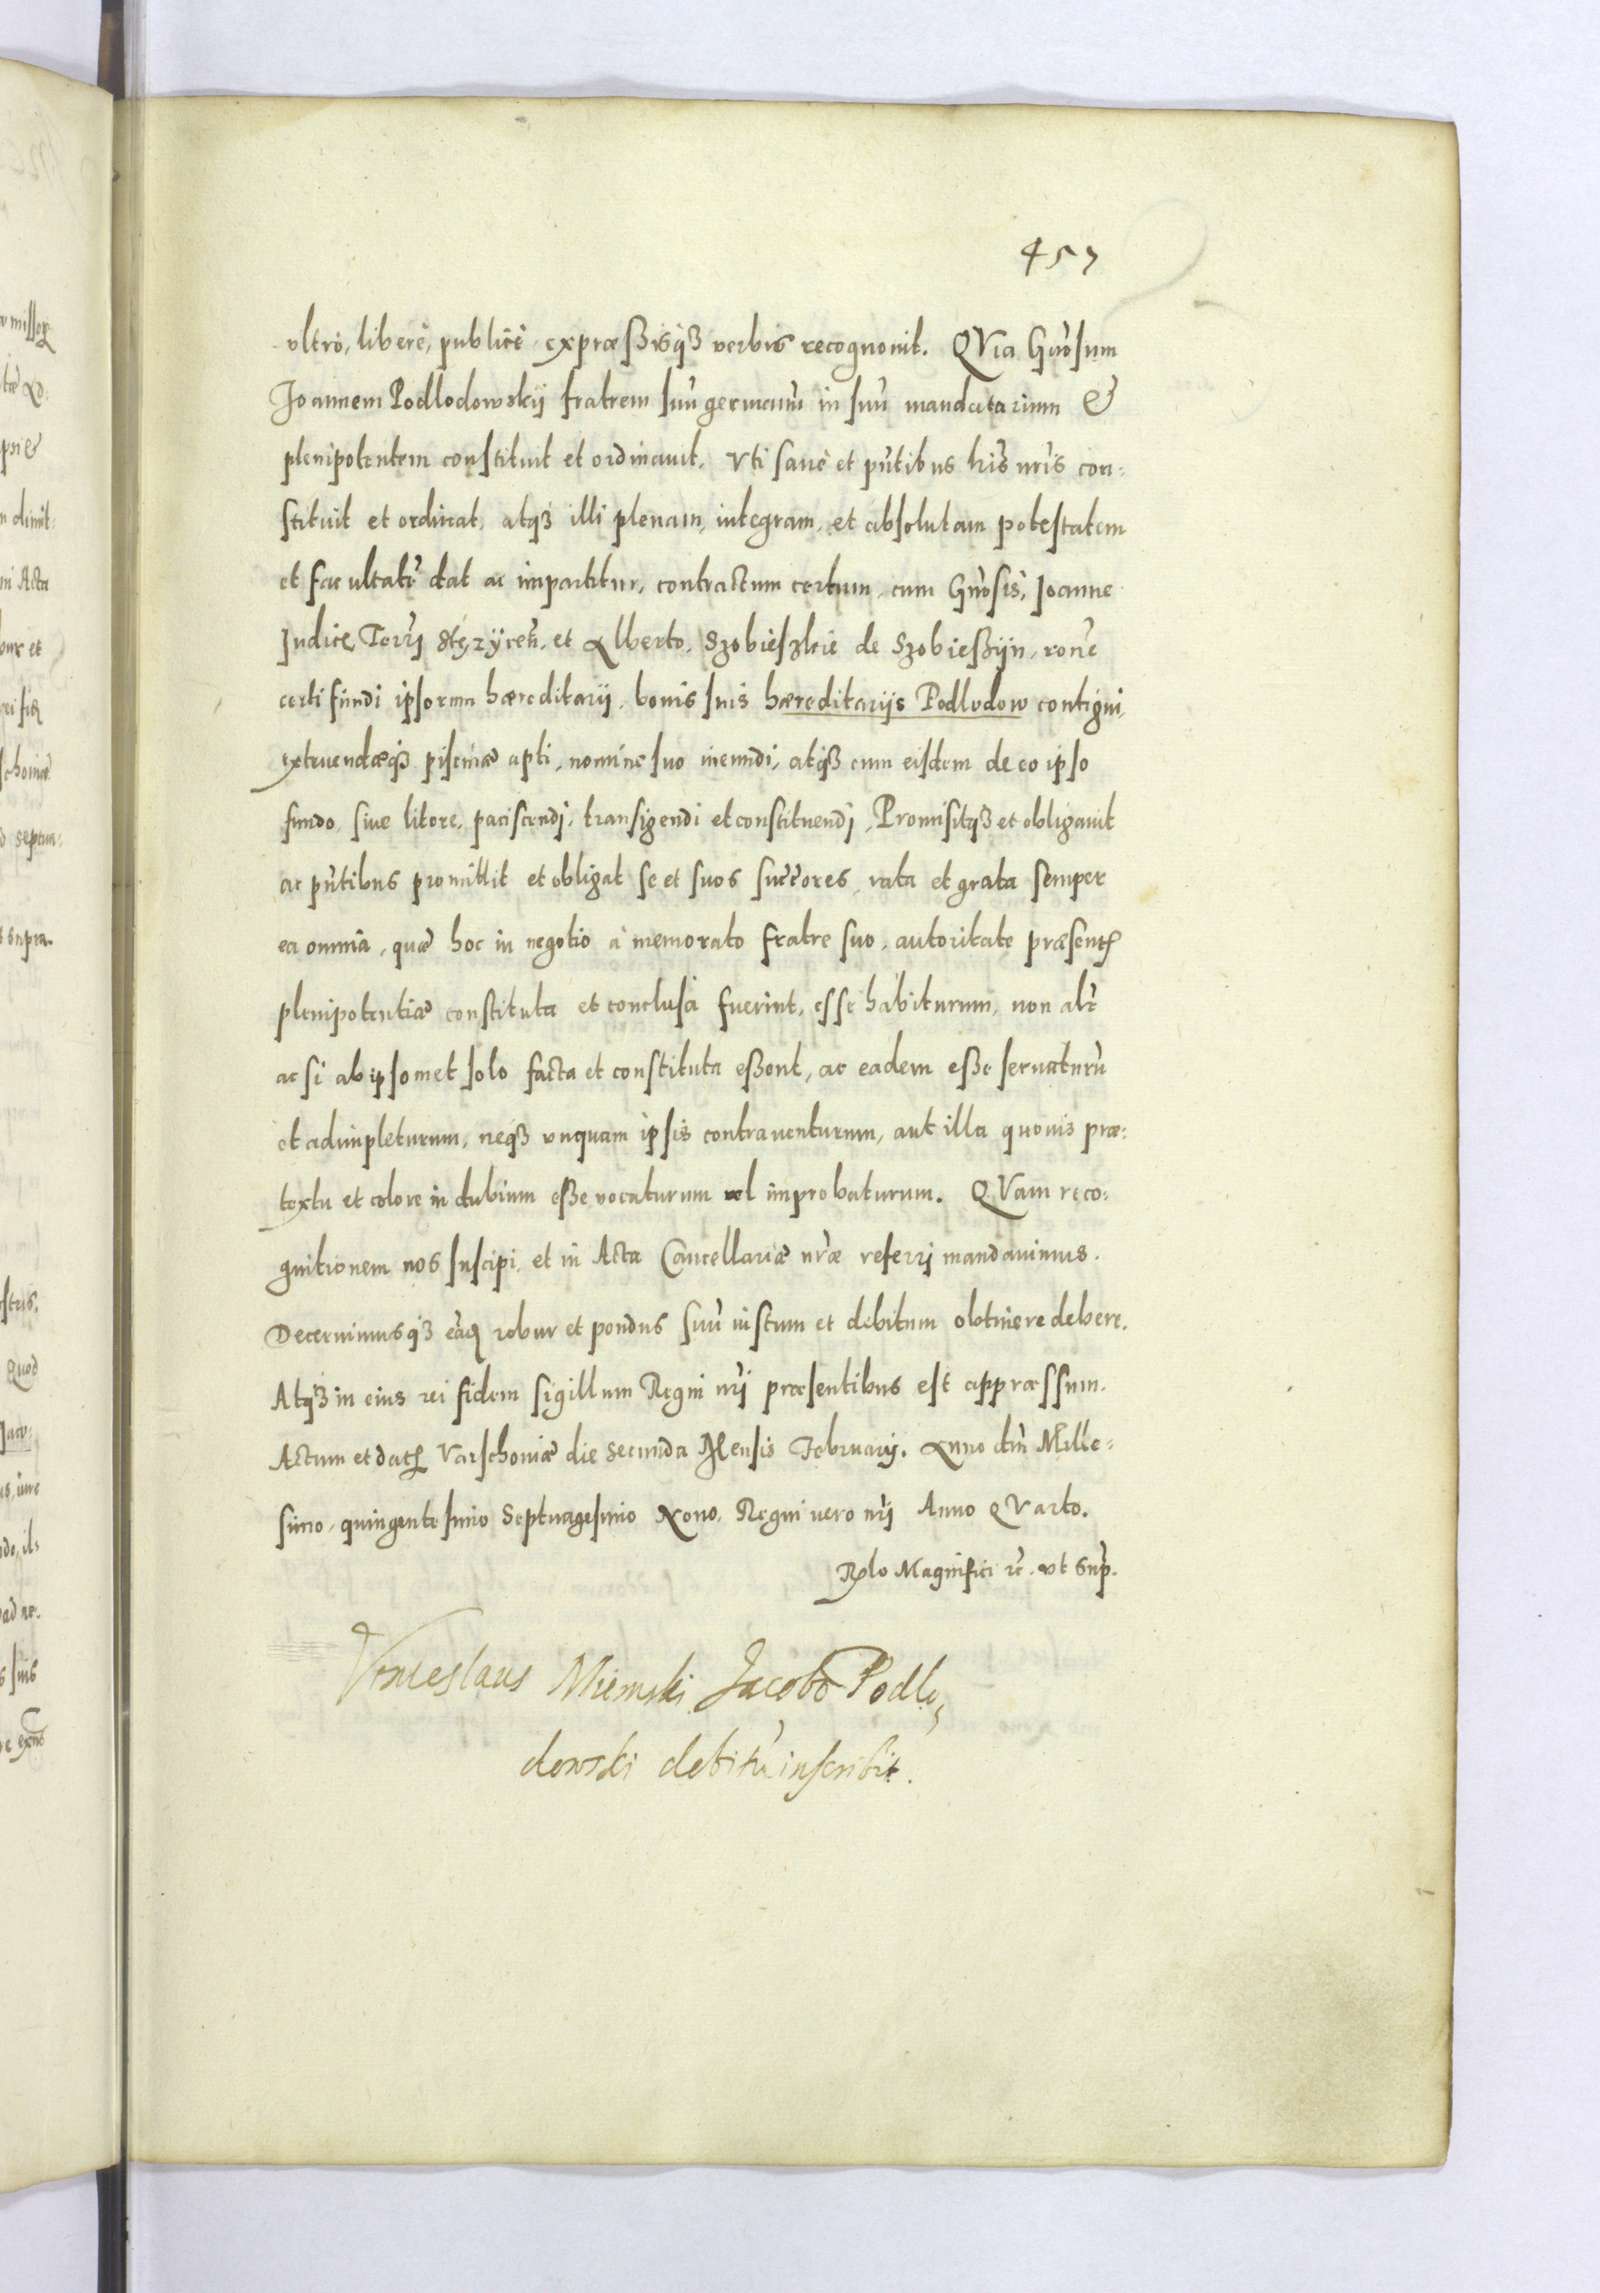 457
vltrò, liberè, publicè expræßisq3 verbis recognouit. QVia Gñosum
Joannem Podlodowskÿ fratrem suũ germanũ in suũ mandatarium &
plenipotentem constituit et ordinauit. Vti sanè et pñtibus his nr̃is con:
stituit et ordinat, atq3 illi plenam, integram, et absolutam potestatem
et facultatẽ dat ac impartitur, contractum certum, cum Gñosis, Joanne
Judice Terrj Stęzÿceñ. et Alberto, Szobieszkie de Szobießÿn, rone
certi fundi ipsorum hæreditarÿ, bonis suis hæreditarÿs Podlodow contigui,
extruendæq3 piscinæ apti, nomine suo ineundi, atq3 cum eisdem de eo ipso
fundo, siue litore, paciscendj, transigendi et constituendj, Promisitq3 et obligauit
ac pñtibus promittit et obligat se et suos succores, rata et grata semper
ea omnia, quæ hoc in negotio à memorato fratre suo, autoritate præsentis
plenipotentiæ constituta et conclusa fuerint, esse habiturum, non alr̃
ac si ab ipsomet solo facta et constituta eßent, ac eadem eße seruaturũ
et adimpleturum, neq3 vnquam ipsis contrauenturum, aut illa quouis præ:
textu et colore in dubium eße vocaturum vel improbaturum. QVam reco:
gnitionem nos suscipi, et in Acta Cancellariæ nr̃æ referrj mandauimus.
Decernimusq3 eãq robur et pondus suũ iustum et debitum obtinere debere.
Atq3 in eius rei fidem sigillum Regni nr̃j præsentibus est appræssum.
Actum et datum Varschouiæ die secunda Mensis Februarÿ. Anno dñj Mille:
simo, quingentesimo Septuagesimo Nono, Regni vero nr̃j Anno QVarto.
Rlo Magnifici &c. vt sup̃.
Venceslaus Miemski Jacobo Podlo,
dowski debitũ inscribit.